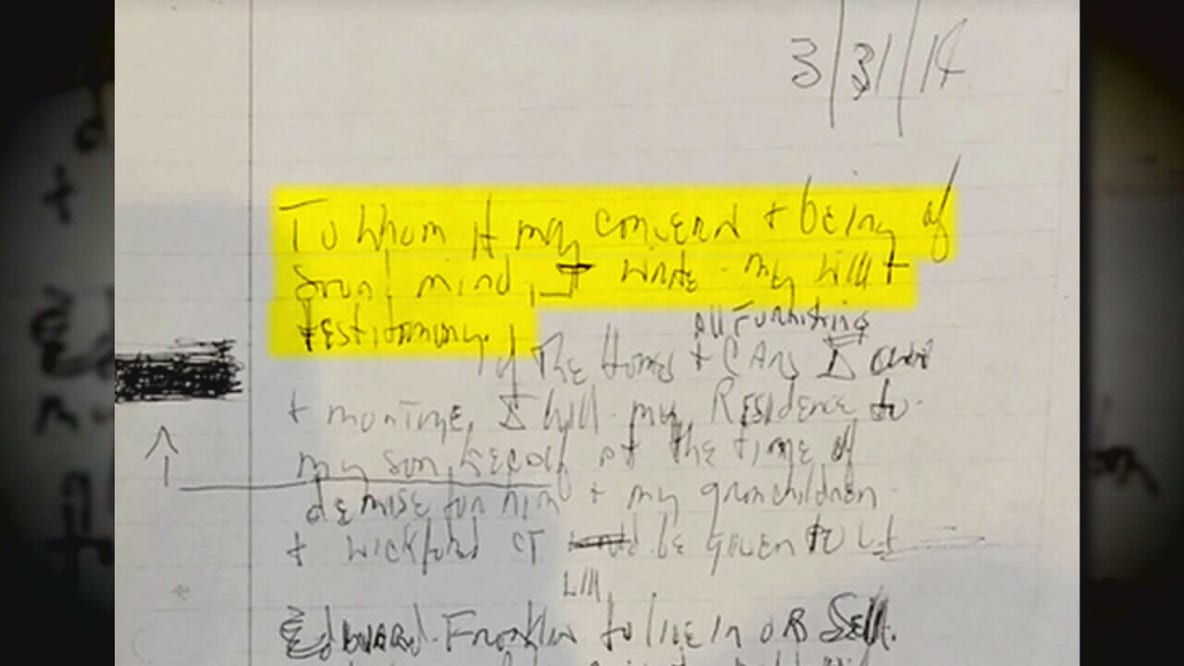 3/31/14
To whom it may concern + being of
sound mind, I write my will +
testimony.
All Furnishing
of The Homes + CARS I own
+ mortgage, I will my Residence to
my son, Kecalf at the time of
demise for him + my granchildren
+ Wickford CT be given to
will
Edward Franklin to live in OR Sell.